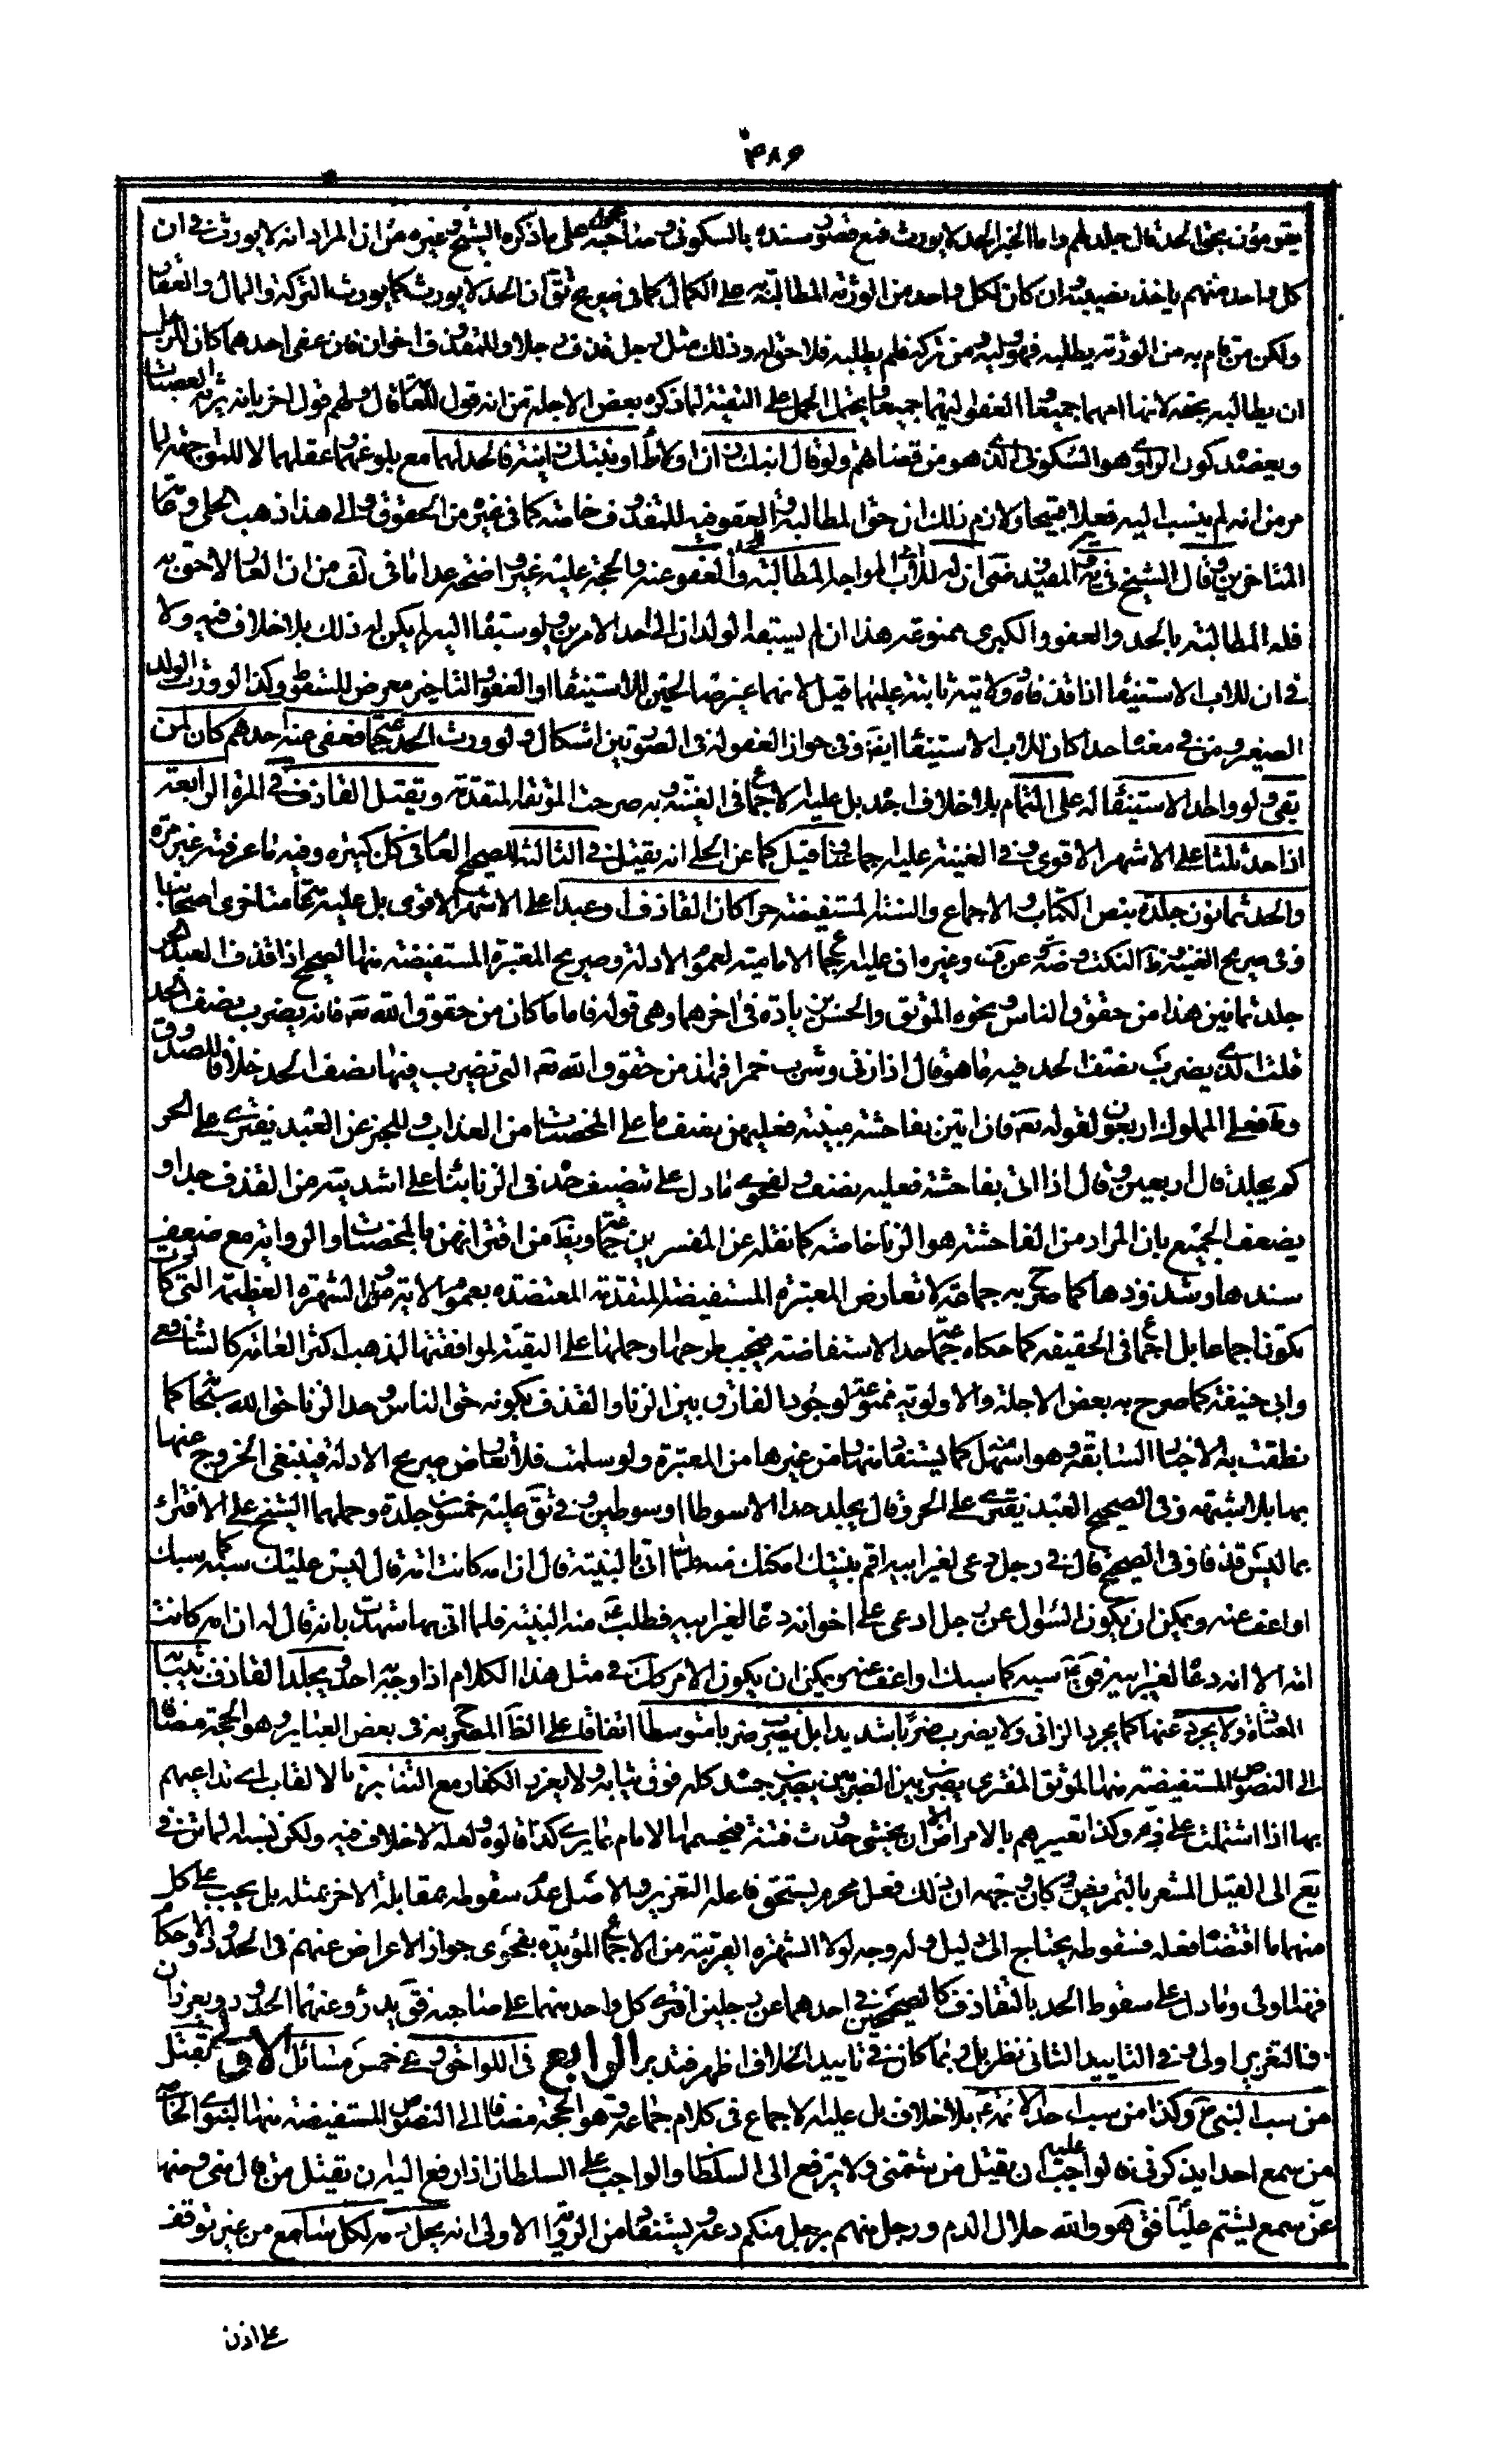 ۴۸۶
يقومون بحق الحد قال جلد لهم واما الخبر الحد لا يورث فمع قصور سنده بالسكوني وصاحبه محمول على ما ذكره الشيخ وغيره من ان المراد انه لا يورث في ان
كل واحد منهم ياخذ نصيبه وان كان لكل واحد من الورثة المطالبة به على الكمال كما في صريح ثق ان الحد لا يورث كما يورث التركة والمال والعقار
ولكن من قام به من الورثة يطلبه فهو وليه ومن تركه فلم يطلبه فلا حق له وذلك مثل رجل قذف رجلا وللمقذوف اخوان فان عفى احدهما كان للاخر
ان يطالبه بحقه لانها امهما جميعا والعفو اليهما جميعا ويحتمل الحمل على التقية لما ذكره بعض الاجلة من انه قول للعامة قال ولهم قول اخر بانه يرثه العصبات
ويعضده كون الراوي هو السكوني الذي هو من قضاتهم ولو قال ابنك زان او لائط او بنتك زانية فالحد لهما مع بلوغهما وعقلهما لا للمواجه لما
مر من انه لم ينسب اليه فعلا قبيحا ولازم ذلك ان حق المطالبة والعفو فيه للمقذوف خاصة كما في غيره من الحقوق والى هذا ذهب الحلي وعامة
المتاخرين وقال الشيخ في ية والمفيد ان له للاب المواجه المطالبة والعفو عنه والحجة عليه غير واضحة عدا ما في لف من ان العار لاحق به
فله المطالبة بالحد والعفو والكبرى ممنوعة هذا ان لم يسبقه الولدان الى احد الامرين ولو سبقا اليه لم يكن له ذلك بلا خلاف فيه ولا
في ان للاب الاستيفاء اذا قذفا وولايته ثابتة عليهما قيل لانهما غير صالحين للاستيفاء او العفو والتاخير معرض للسقوط وكذا لو ورث الولد
الصغير ومن في معناه حدا كان للاب الاستيفاء ايضا وفي جواز العفو له في الصورتين اشكال ولو ورث الحد جماعة فعفى منه احدهم كان لمن
بقي ولو واحدا الاستيفاء له على التمام بلا خلاف اجده بل عليه الاجماع في الغنية وبه صرحت الموثقة المتقدمة ويقتل القاذف في المرة الرابعة
اذا حد ثلثا على الاشهر الاقوى وفي الغنية عليه اجماعنا وقيل كما عن الحلي انه يقتل في الثالثة للصحيح العام في كل كبيرة وفيه ما عرفته غير مرة
والحد ثمانون جلدة بنص الكتاب والاجماع والسنة المستفيضة حرا كان القاذف او عبدا على الاشهر الاقوى بل عليه عامة متاخري اصحابنا
وفي صريح الغنية ظ النكت وضة وعن ف وغيره ان عليه اجماع الامامية لعموم الادلة وصريح المعتبرة المستفيضة منها الصحيح اذا قذف العبد الحر
جلد ثمانين هذا من حقوق الناس ونحوه الموثق والحسن بزيادة في اخرهما وهي قوله فاما ما كان من حقوق الله تعا فانه يضرب نصف الحد
قلت الذي يضرب نصف الحد فيه ما هو قال اذا زنى وشرب خمرا فهذا من حقوق الله تعا التي تضرب فيها نصف الحد خلافا للصدوق
وط فعلى المملوك اربعون لقوله تعا فان اتين بفاحشة مبينة فعليهن نصف ما على المحصنات من العذاب وللخبر عن العبد يفتري على الحر
كم يجلد قال اربعين وقال اذا اتى بفاحشة فعليه نصف ولفحوى ما دل على تنصيف حده في الزنا بناء على اشديته من القذف جدا و
يضعف الجميع بان المراد من الفاحشة هو الزنا خاصة كما نقله عن المفسرين جماعة ويظهر من اقترانهن بالمحصنات والرواية مع ضعف
سندها وشذوذها كما صرح به جماعة لا تعارض المعتبرة المستفيضة المتقدمة المعتضدة بعموم الاية والشهرة العظيمة التي كادت
تكون اجماعا بل اجماع في الحقيقة كما حكاه جماعة حد الاستفاضة فيجب طرحها وحملها على التقية لموافقتها لمذهب اكثر العامة كالشافعي
وابي حنيفة كما صرح به بعض الاجلة والاولوية ممنوعة لوجود الفارق بين الزنا والقذف بكونه حق الناس وحد الزنا حق الله سبحانه كما
نطقت به الاخبار السابقة وهو اسهل كما يستفاد منها ومن غيرها من المعتبرة ولو سلمت فلا تعارض صريح الادلة فينبغي الخروج عنها
بها بلا شبهة وفي الصحيح العبد يفتري على الحر قال يجلد حدا الا سوطا او سوطين وفي ثق عليه خمسون جلدة وحملهما الشيخ على الافتراء
بما ليس قذفا وفي الصحيح قال في رجل دعى لغير ابيه اقم بينتك امكنك منه فلما اتى بالبينة قال ان امه كانت امة قال ليس عليك سبه كما سبك
او اعف عنه ويمكن ان يكون السؤال عن رجل ادعى على اخر انه دعا لغير ابيه فطلب منه البينة فلما اتى بها شهدت بانه قال له ان امه كانت
امة الا انه دعا لغير ابيه فق سبه كما سبك او اعف عنه ويمكن ان يكون الامر كك في مثل هذا الكلام اذا وجه احد ويجلد القاذف بثيابه
المعتادة ولا يجرد عنها كما يجرد الزاني ولا يضرب ضربا شديدا بل يضرب ضربا متوسطا اتفاقا على الظ المصرح به في بعض العباير وهو الحجة مضافا
الى النصوص المستفيضة منها الموثق المفتري يضرب بين الضربين يضرب جسده كله فوق ثيابه ولا يعزر الكفار مع التنابز بالالقاب اي تداعيهم
بها اذا اشتملت على ذم وكذا تعييرهم بالامراض الا ان يخشى حدوث فتنة فيحسمها الامام بما يرى كذا قالوه ولعله لا خلاف فيه ولكن نسبه الماتن في
يع الى القيل المشعر بالتمريض وكان وجهه ان ذلك فعل محرم يستحق فاعله التعزير والاصل عدم سقوطه بمقابلة الاخر بمثله بل يجب على كل
منهما ما اقتضاه فعله فسقوطه يحتاج الى دليل وله وجه لولا الشهرة القريبة من الاجماع المؤيدة بفحوى جواز الاعراض عنهم في الحدود والاحكام
فهنا اولى وما دل على سقوط الحد بالتقاذف كالصحيحين في احدهما عن رجلين افترى كل واحد منهما على صاحبه فق يدرؤ عنهما الحد ويعزران
فالتعزير اولى وفي التاييد الثاني نظر بل ربما كان في تاييد الخلاف اظهر فتدبر الرابع في اللواحق وهي خمس مسائل الاولى يقتل
من سب النبي ص وكذا من سب احد الائمة ع بلا خلاف بل عليه الاجماع في كلام جماعة وهو الحجة مضافا الى النصوص المستفيضة منها النبوي الخاص
من سمع احدا يذكرني فالواجب عليه ان يقتل من شتمني ولا يرفع الى السلطان والواجب على السلطان اذا رفع اليه ان يقتل من نال مني ومنها
عن من سمع يشتم عليا فق هو والله حلال الدم ورجل منهم برجل منكم دعه ويستفاد من الرواية الاولى انه يحل دمه لكل سامع من غير توقف
على اذن